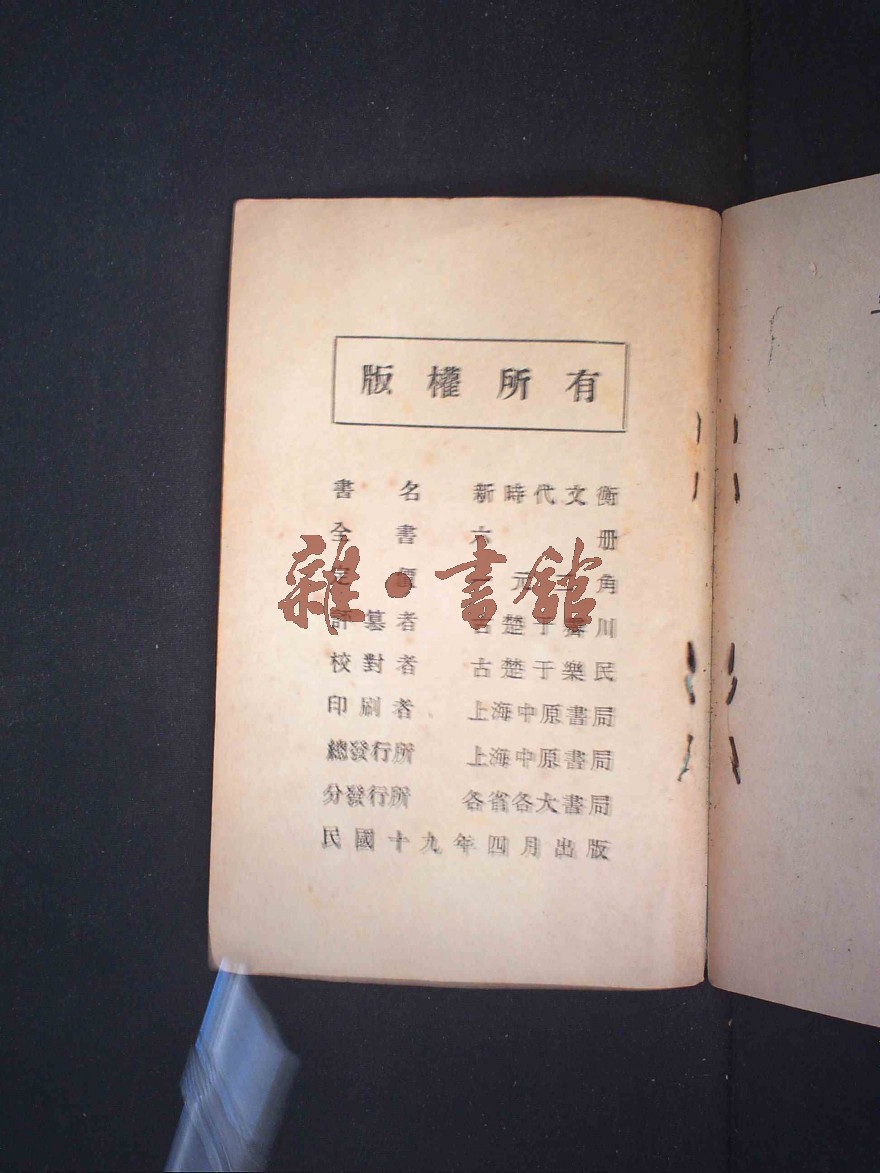 版權所有
書名 新時代文衡
全書 六册
定價 元二角
評纂者 古楚于霽川
校對者 古楚于樂民
印刷者 上海中原書局
總發行所 上海中原書局
分發行所 各省各大書局
民國十九年四月出版
雜·書館